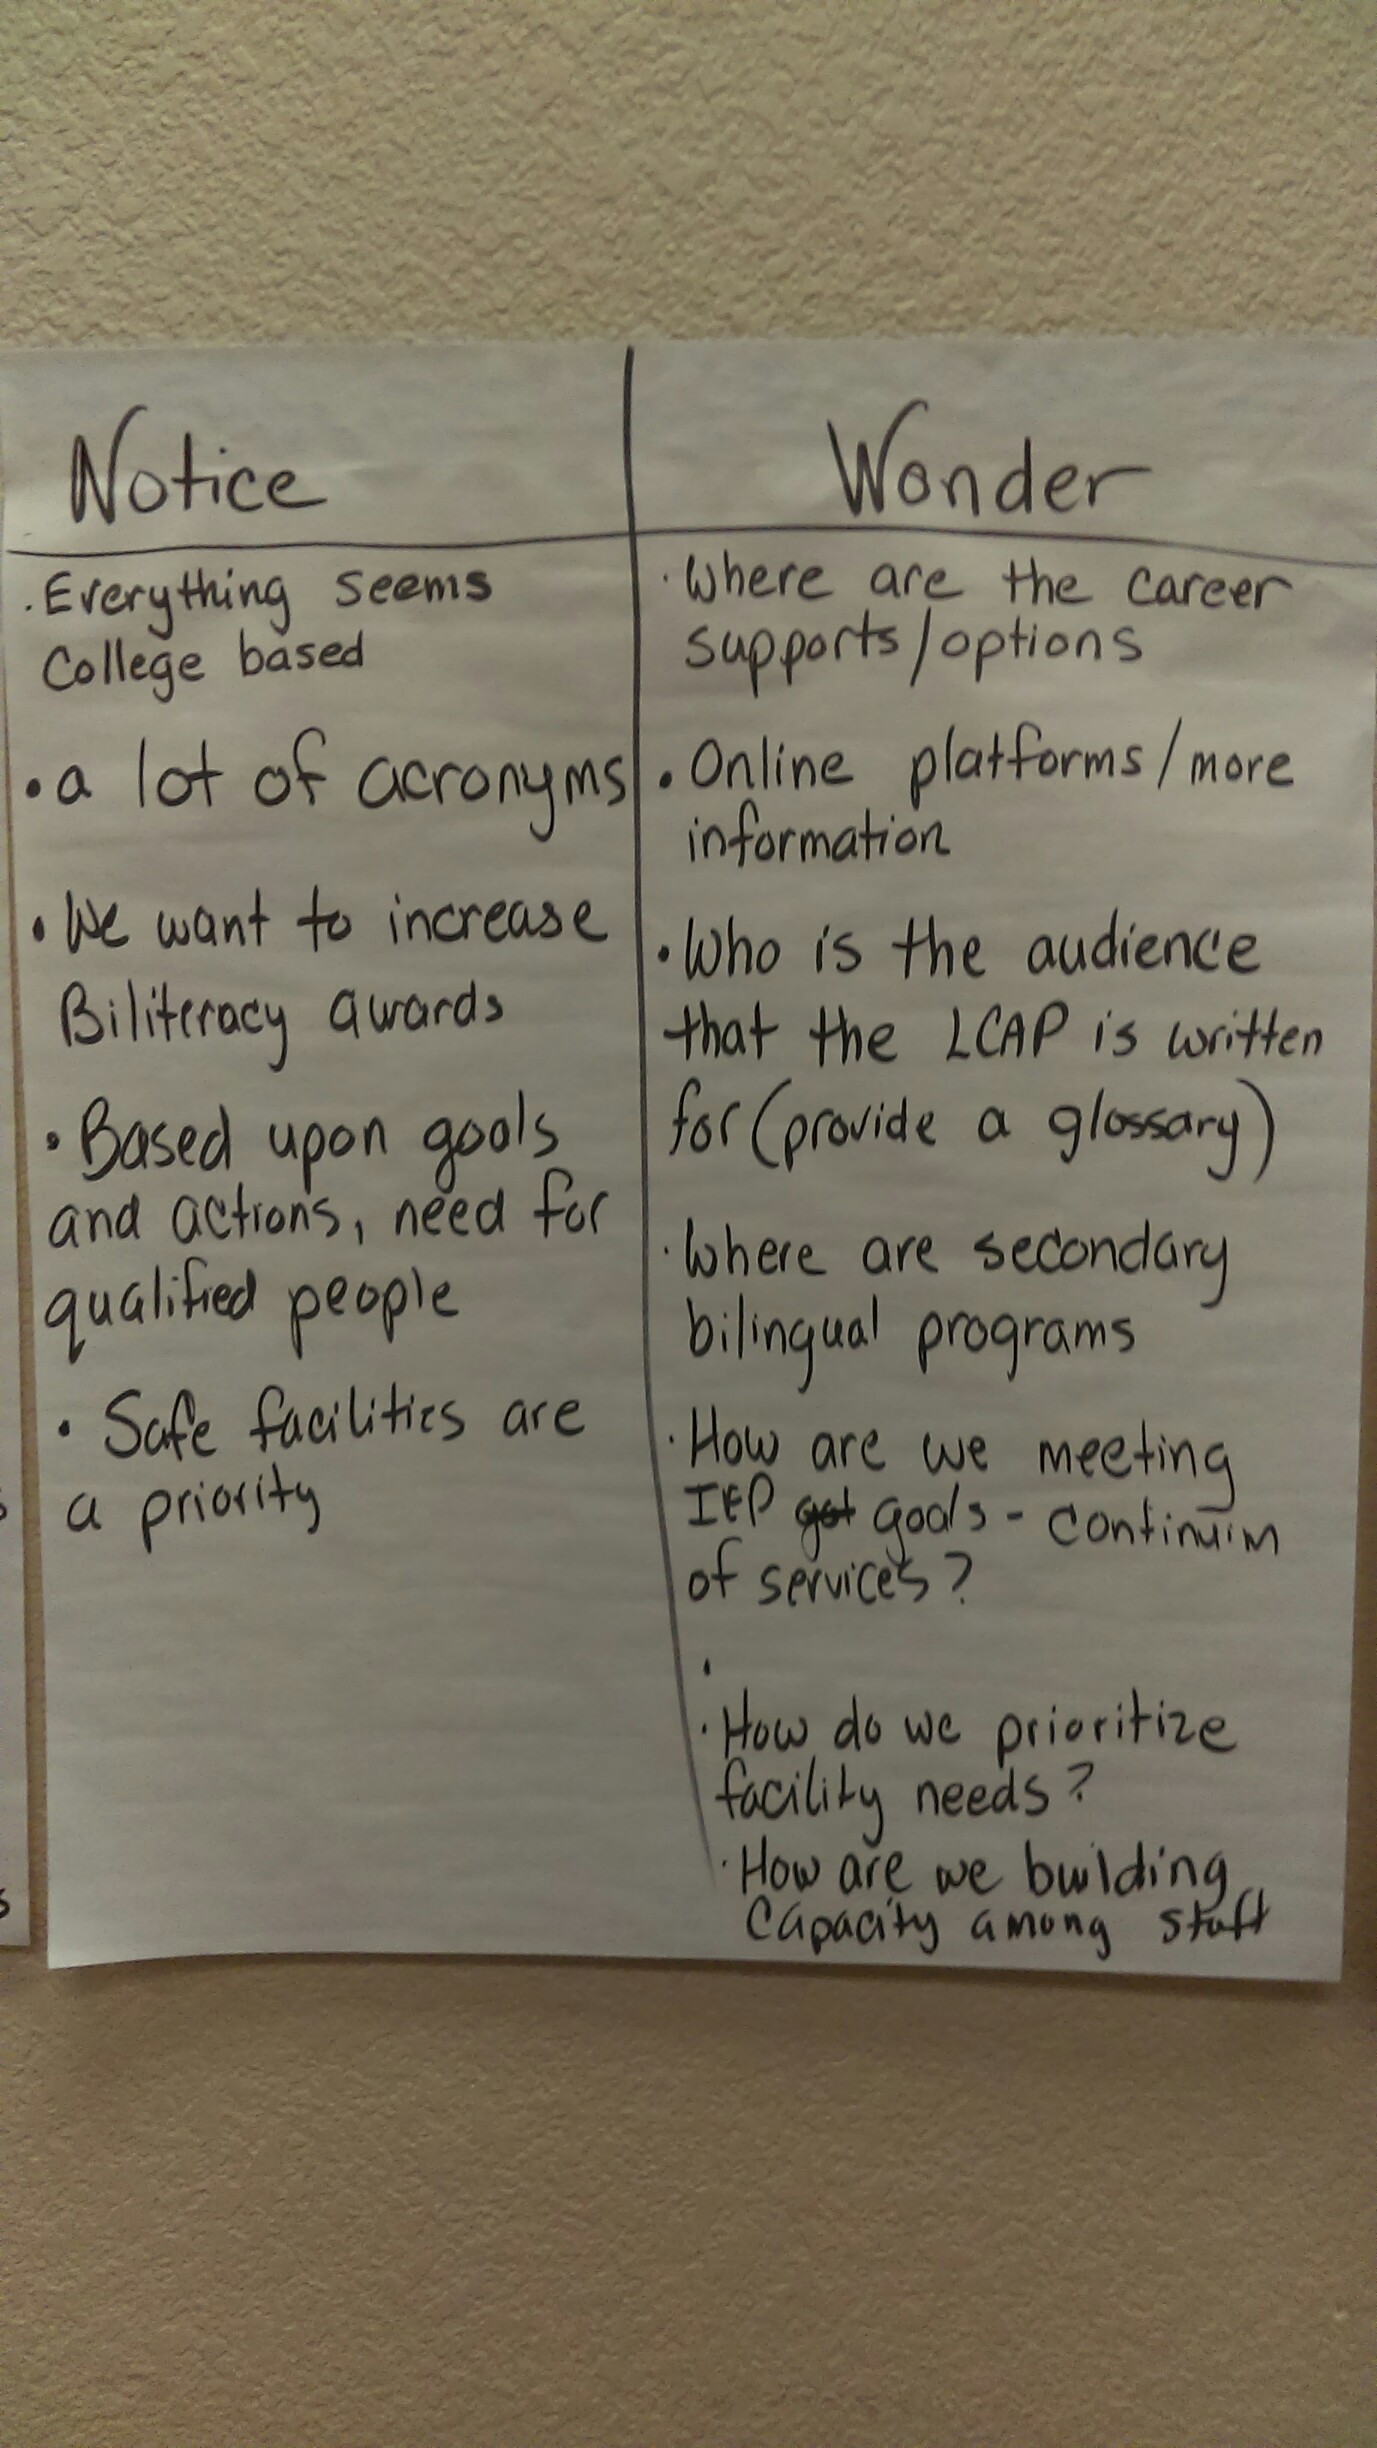 Notice
. Everything seems
College based
• a lot of acronyms
• We want to increase
Biliteracy awards
• Based upon goals
and actions, need for
qualified people
• Safe facilities are
a priority
Wonder
· Where are the career
supports/options
• Online platforms/more
information
• Who is the audience
that the LCAP is written
for (provide a glossary)
· Where are secondary
bilingual programs
· How are we meeting
IEP goals - continuim
of services?
·
· How do we prioritize
facility needs?
· How are we building
Capacity among staff